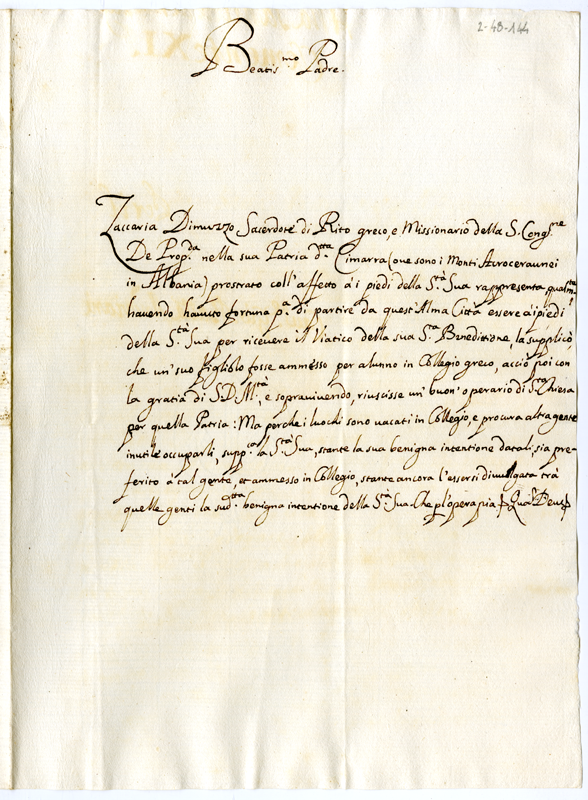 2-48-144
Beatis.mo Padre.
Zaccaria Dimuzzo Sacerdote di Rito greco, e Missionario della S. Cong.ne
De Prop.da nella sua Patria d.tta Cimarra (oue sono i Monti Acroceraunei
in Albania) prostrato coll'affetto à i piedi della S.tà Sua rappresenta,
hauendo hauuto fortuna p.a di partire da quest'Alma Città essere à i piedi
della S.tà Sua per riceuere il Viatico della sua S.ta Beneditione, la supplicò
che un'suo figliolo fosse ammesso per alunno in Collegio greco, acciò poi con
la gratia di S. D. M.tà, e soprauiuendo, riuscisse un'buon'operario di S.ta Chiesa
per quella Patria: Ma perche i luochi sono uacati in Collegio, e procura altra gente
inutile occuparli, supp.ca la S.tà Sua, stante la sua benigna intentione datali, sia pre-
ferito à tal gente, et ammesso in Collegio, stante ancora l'essersi diuulgata trà
quelle genti la sud.tta benigna intentione della S.tà Sua. Che p l'opera pia Quã Deus